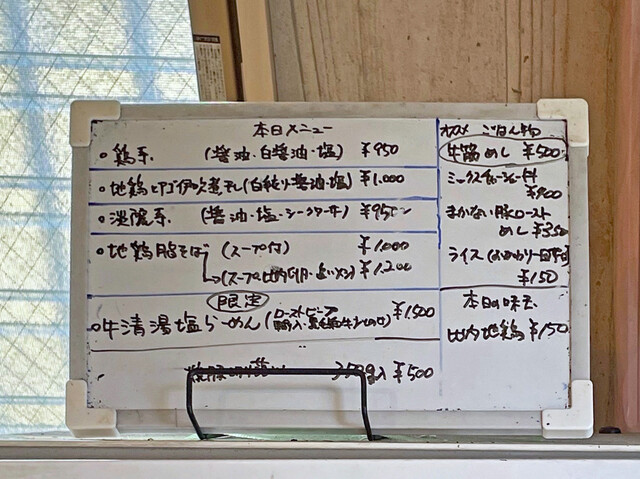 本日メニュー
・鶏系 (醤油・白醤油・塩) ¥950
・地鶏と 伊吹煮干し(白 醤油・塩) ¥1.000
・淡麗系 (醤油・塩・シークワーサー) ¥950
・地鶏脂そば (スープ付) ¥1.000
(スープ比内 ・追いメシ) ¥1.200
限定
・牛清湯塩らーめん (ローストビーフ ¥1,500
¥500
オススメ ごはん物
牛脂めし ¥500
ミックスチャーシュー丼
¥900
まかない豚ロースト
めし ¥350
ライス (おかわり一回
¥150
本日の味玉
比内地鶏 ¥150